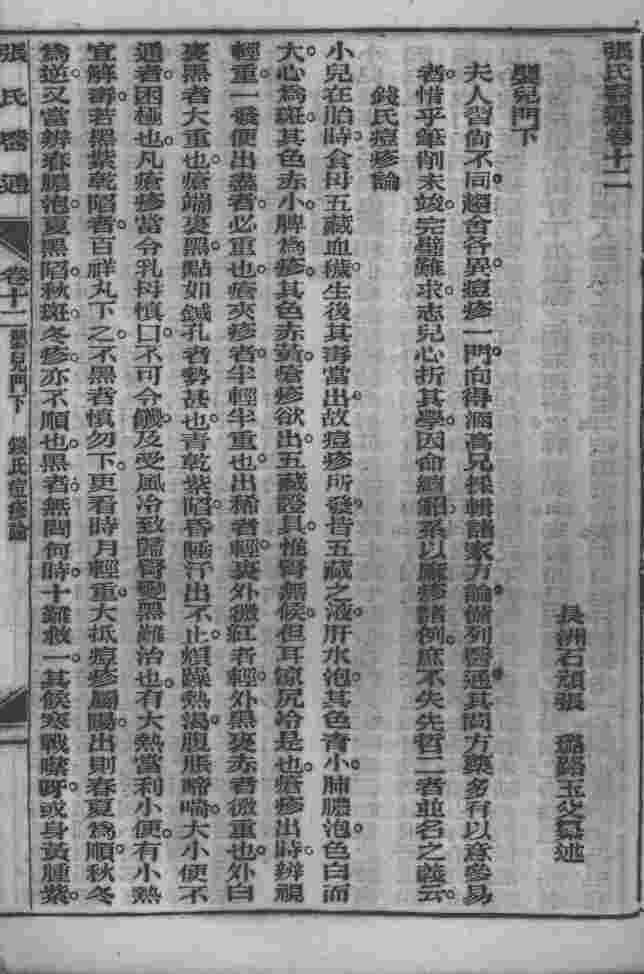 張氏醫通卷十二
長洲石頑張　璐路玉父纂述
嬰兒門下
夫人習尙不同趨舍各異痘疹一門向得涵高兄採輯諸家方論備列醫通其間方藥多有以意參易
者惜乎筆削未竣完璧難求志兒心折其學因命續貂系以麻疹諸例庶不失先哲二者並名之義云
錢氏痘疹論
小兒在胎時食母五藏血穢生後其毒當出故痘疹所發皆五藏之液肝水泡其色青小肺膿泡色白而
大心爲斑其色赤小脾爲疹其色赤黃瘡疹欲出五藏證具惟腎無候但耳涼尻冷是也瘡疹出時辨視
輕重一發便出盡者必重也瘡夾疹者半輕半重也出稀者輕裏外微紅者輕外黑裏赤者微重也外白
裏黑者大重也瘡端裏黑點如鍼孔者勢甚也青乾紫陷昏睡汗出不止煩躁熱渴腹脹啼喘大小便不
通者困極也凡瘡疹當令乳母慎口不可令饑及受風冷致歸腎變黑難治也有大熱當利小便有小熱
宜解毒若黑紫乾陷者百祥丸下之不黑者慎勿下更看時月輕重大抵痘疹屬陽出則春夏爲順秋冬
爲逆又當辨春膿泡夏黑陷秋斑冬疹亦不順也黑者無問何時十難救一其候寒戰噤呀或身黃腫紫
張氏醫通
卷十二
嬰兒門下　錢氏痘疹論